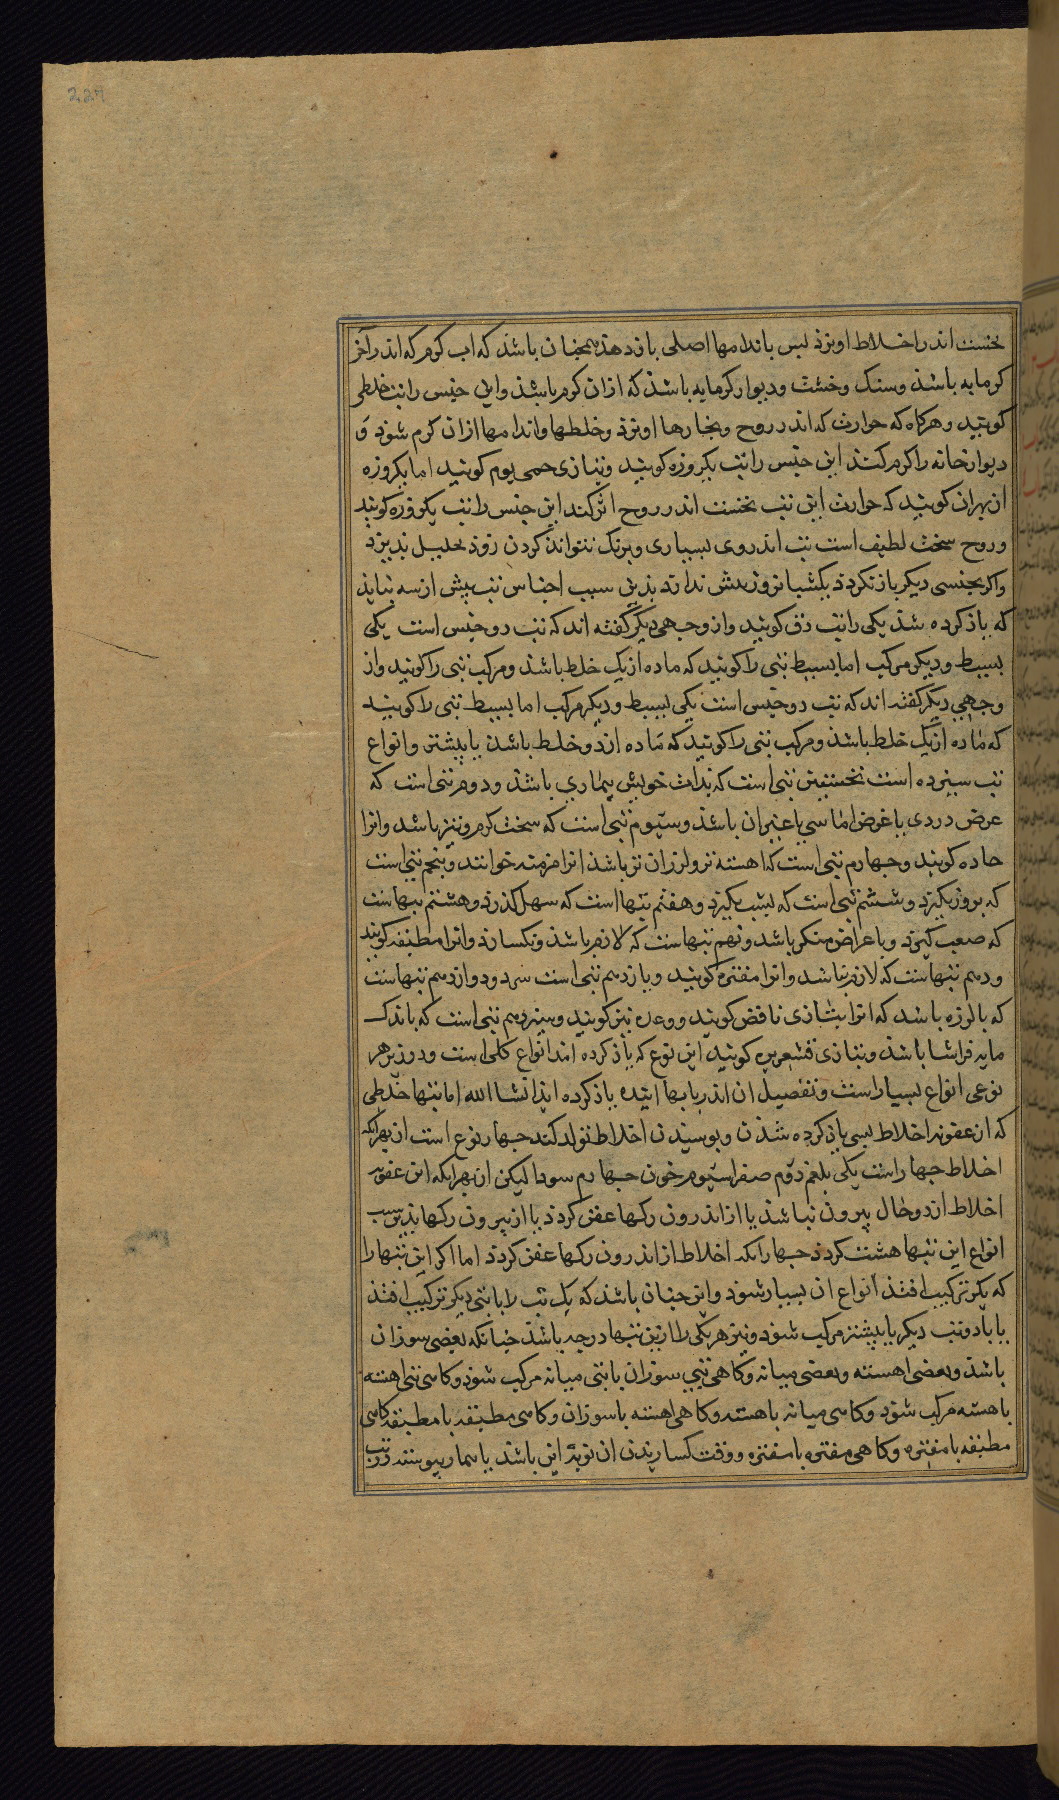 227
نخست اندر اخلاط اویزذ پس باندامها اصلی باز دهذ همچنان باشذ که اب کرم که اندر آخر
کرمابه باشذ وسنک وخشت ودیوار کرمابه باشذ که ازان کرم باشذ واین جنس را تب خلطی
کویند وهرکاه که حرارت که اندر روح وبخارها اویزذ وخلطها واندامها ازان کرم شوذ و
دیوار خانه را کرم کند این جنس را تب یکروزه کویند وبتازی حمی یوم کویند اما یکروزه
از بهران کویند که حرارت این تب نخست اندر روح اثر کند این جنس را تب یکروزه کویند
وروح سخت لطیف است تب اندر وی بسیاری ودرنک نتواند کردن زوذ تحلیل پذیرذ
واکر بجنسی دیکر باز نکردذ یکشبانروز بیش ندارد بذین سبب اجناس تب بیش از سه نباید
که یاذ کرده شذ یکی را تب دق کویند واز وجهی دیکر کفته اند که تب دو جنس است یکی
بسیط ودیکر مرکب اما بسیط تبی را کویند که ماده از یک خلط باشذ ومرکب تبی را کویند واز
وجهی دیکر کفته اند که تب دو جنس است یکی بسیط ودیکر مرکب اما بسیط تبی را کویند
که ماده از یک خلط باشذ ومرکب تبی را کویند که ماده از دو خلط باشذ یا بیشتر وانواع
تب سیزده است نخستین تبی است که بذات خویش بیماری باشذ ودوم تبی است که
عرض دردی یا عرض اماسی یا غیر ان باشذ وسیوم تبی است که سخت کرم وتیز باشد وانرا
حاده کویند وچهارم تبی است که اهسته تر ولرزان تر باشذ انرا مزمنه خوانند وپنجم تبی است
که بروز کیرد وششم تبی است که بشب کیرد وهفتم تبها است که سهل کذرد وهشتم تبهاست
که صعب کیرد وبا عراض منکر باشد ونهم تبهاست که لازم باشذ ونکسارذ وانرا مطبقه کویند
ودهم تبهاست که لازم نباشد وانرا مفتره کویند ویازدهم تبی است سرد ودوازدهم تبهاست
که با لرزه باشد که انرا بتازی نافض کویند ورعده نیز کویند وسیزدهم تبی است که باندک
مایه فراشا باشذ وبتازی قشعریره کویند این نوع که یاذ کرده امد انواع کلی است ودر زیر هر
نوعی انواع بسیار است وتفصیل ان اندر بابها اینده یاذ کرده ایذ انشا الله اما تبها خلطی
که از عفونت اخلاط بسی یاذ کرده شذن وپوسیدن اخلاط تولد کند چهار نوع است از بهر انکه
اخلاط چهار است یکی بلغم دوم صفرا سیوم خون چهارم سودا لیکن از بهر انکه این عفونت
اخلاط از دو حال بیرون نباشذ یا از اندرون رکها عفن کردذ یا از بیرون رکها بذین سبب
انواع این تبها هشت کردذ چهار انکه اخلاط از اندرون رکها عفن کردذ اما اکر این تبها را
که یکر ترکیب افتذ انواع ان بسیار شود واین چنان باشذ که یک تب را با تبی دیکر ترکیب افتذ
یا با دو تب دیکر یا بیشتر مرکب شود ونیز هر یکی را ازین تبها درجه باشذ چنانکه بعضی سوزان
باشذ وبعضی اهسته وبعضی میانه وکاهی تبی سوزان با تبی میانه مرکب شود وکاهی تبی اهسته
با هسته مرکب شود وکاهی میانه با هسته وکاهی اهسته با سوزان وکاهی مطبقه با مطبقه کاهی
مطبقه با مفتره وکاهی مفتره با مفتره ووقت کساریدن ان نوبت این باشذ یا بیمار پیوسته در تب